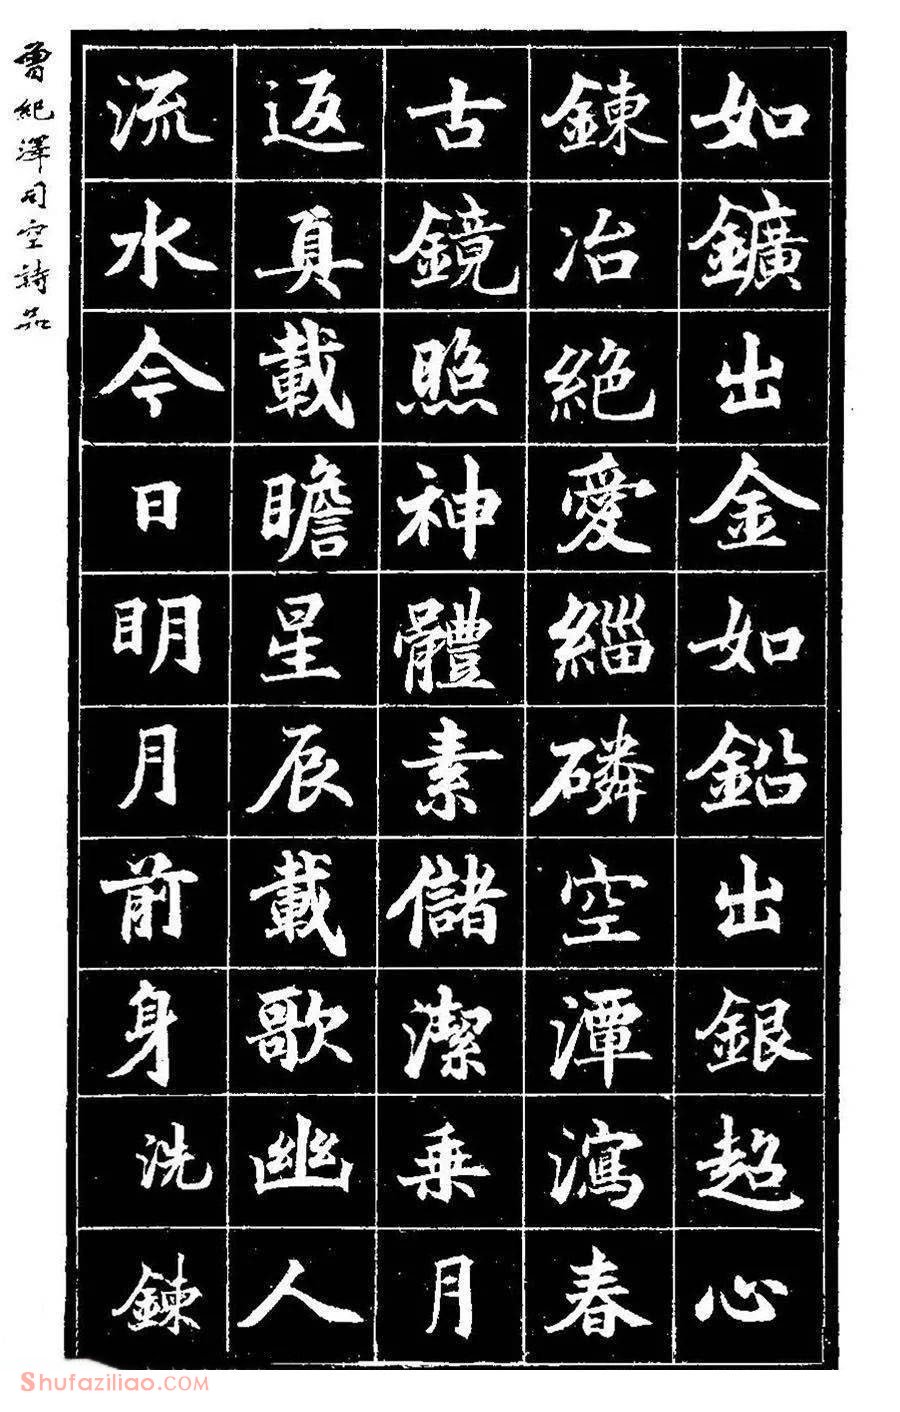 如鑛出金如鉛出銀超心
鍊冶絕愛緇磷空潭瀉春
古鏡照神體素儲潔乗月
返真載瞻星辰載歌幽人
流水今日明月前身洗鍊
曾紀澤司空詩品
Shufaziliao.COM